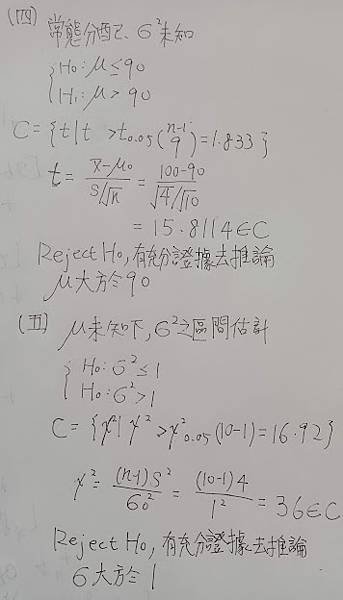 (四) 常態分配、σ²未知
{H₀: μ ≤ 90
H₁: μ > 90
C = {t | t > t₀.₀₅(n-1 9) = 1.833}
t = (x̄-μ₀)/(S/√n) = (100-90)/(√4/√10)
= 15.8114 ∈ C
Reject H₀, 有充分證據去推論
μ大於90
(五) μ未知下, σ²之區間估計
{H₀: σ² ≤ 1
H₀: σ² > 1
C = {χ² | χ² > χ²₀.₀₅(10-1) = 16.92}
χ² = (n-1)S²/σ₀² = (10-1)4/1² = 36 ∈ C
Reject H₀, 有充分證據去推論
σ大於1